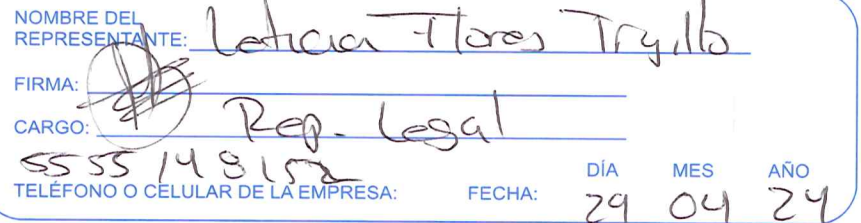 NOMBRE DEL
REPRESENTANTE: Leticia Flores Trujillo
FIRMA:
CARGO: Rep. Legal
DÍA MES AÑO
TELÉFONO O CELULAR DE LA EMPRESA: FECHA: 29 04 24